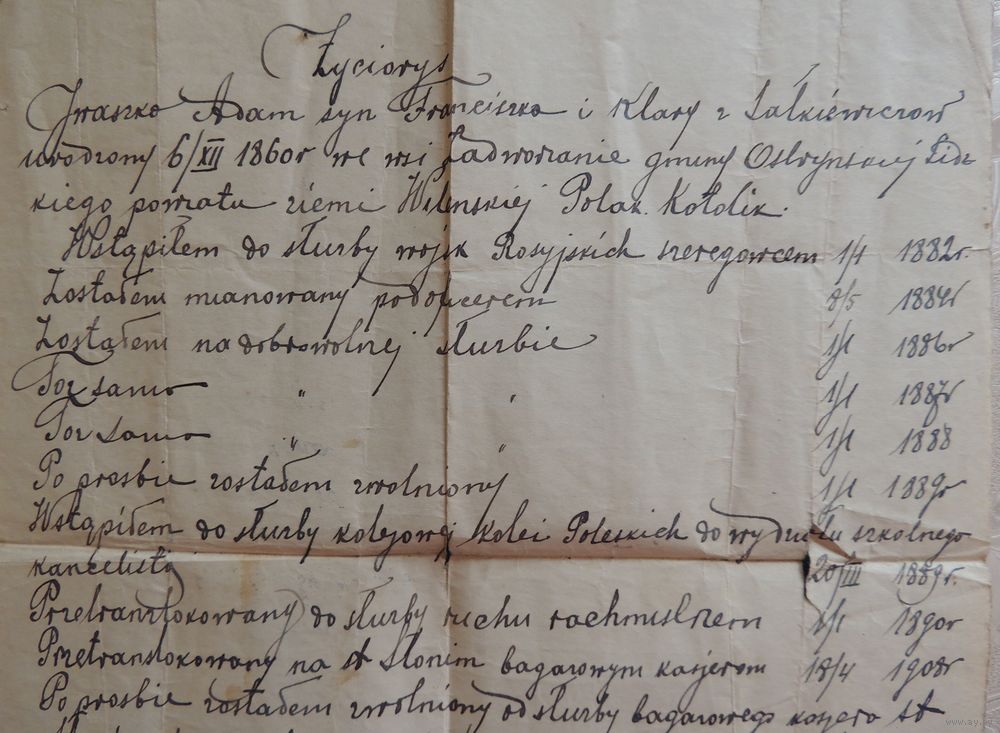 Życiorys
Iwaszko Adam syn Franciszka i Klary z Salkiewiczow
urodzony 6/XII 1860r we wsi Zadworzanie gminy Ostrynskiej Lidz
kiego powiatu ziemi Wilenskiej Polak. Kotolik.
Wstąpiłem do służby wojsk Rosyjskich szeregowcem 1/1 1882r.
Zostałem mianowany podoficerem 8/5 1884r
Zostałem na dobrowolnej służbie 1/1 1886r
Toz samo " " 1/1 1887r
Toz samo " " 1/1 1888
Po prosbie zostałem zwolniony 1/1 1889r
Wstąpiłem do służby kolejowej kolei Poleskich do wydziału szkolnego
kancelistą 20/III 1889r.
Przetranzlokowany do służby ruchu rachmistrzem 1/1 1890r
Przetranslokowany na st Slonim bagazowym kasjerom 18/4 1908r
Po prosbie zostałem zwolniony od służby bagazowego kasjera st
www.ay.by